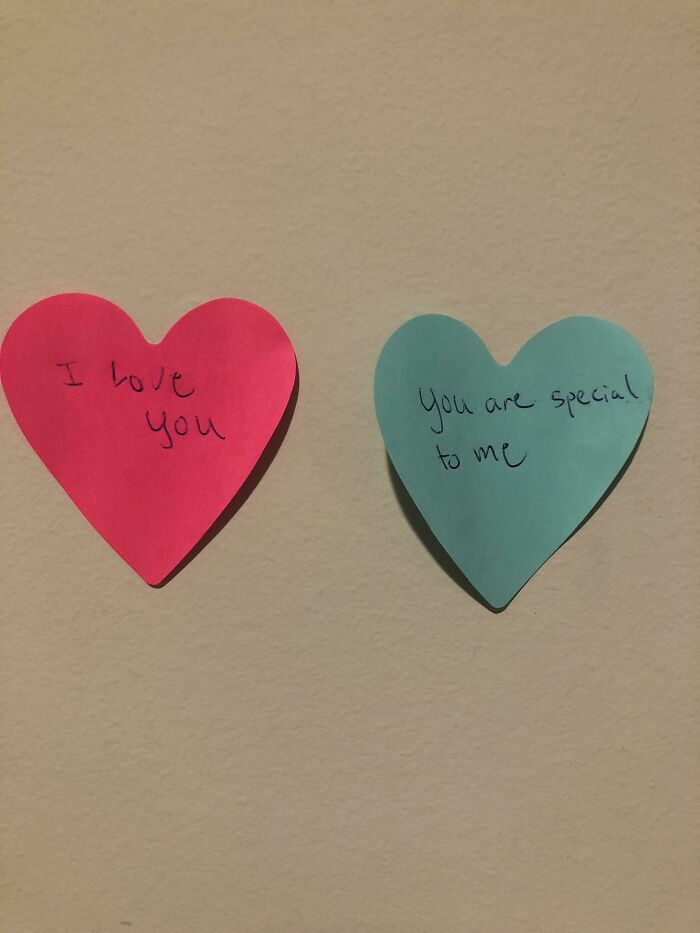 I Love
You
You are special
to me